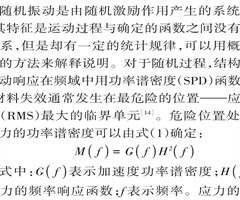 随机振动是由随机激励作用产生的系统
其特征是运动过程与确定的函数之间没有
系，但是却有一定的统计规律，可以用概
的方法来解释说明。对于随机过程，结构
动响应在频域中用功率谱密度(SPD)函数
材料失效通常发生在最危险的位置——应
(RMS)最大的临界单元[14]。危险位置处
力的功率谱密度可以由式(1)确定：
M(f)=G(f)H²(f)
式中：G(f)表示加速度功率谱密度；H(f
力的频率响应函数；f表示频率。应力的